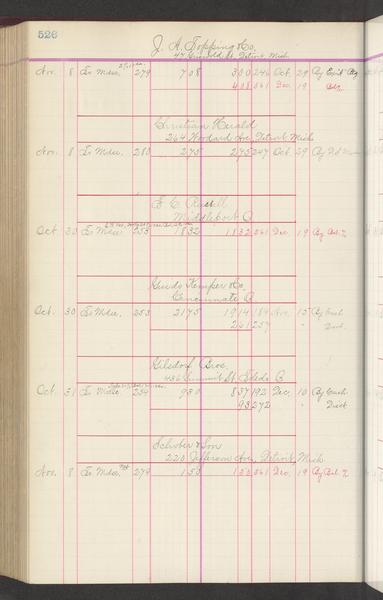 526
J. A. Topping & Co,
47 Griswold St, Detroit Mich
Nov. 8 To Mdse. 279 708 300 246 Oct. 29 By
408 561 Dec. 19 Bal
Christian Herald
264 Woodard Ave, Detroit Mich
Nov. 8 To Mdse. 280 275 275 247 Oct 29 By
F C Russell
Middleport O
Oct 30 To Mdse 253 1832 1832 561 Dec. 19 By Bal.
Guido Kemper & Co,
Cincinnati O
Oct. 30 To Mdse. 253 2175 1914 184 Nov. 15 By Cash
261 257 " Disct.
Gilsdorf Bros.
436 Summit St. Toledo O
Oct. 31 To Mdse 254 930 837 192 Dec. 10 By Cash
93 272 " Disct
Schober & Son
220 Jefferson Ave, Detroit, Mich
Nov. 8 To Mdse 279 150 150 561 Dec. 19 By Bal.